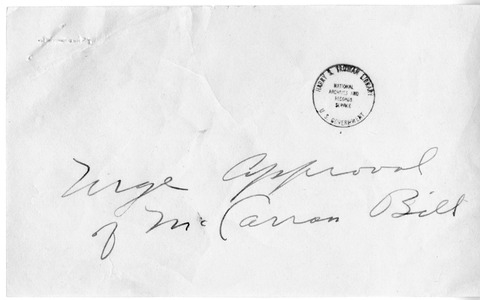 HARRY S. TRUMAN LIBRARY
NATIONAL
ARCHIVES AND
RECORDS
SERVICE
U.S. GOVERNMENT
Urge Approval
of McCarran Bill